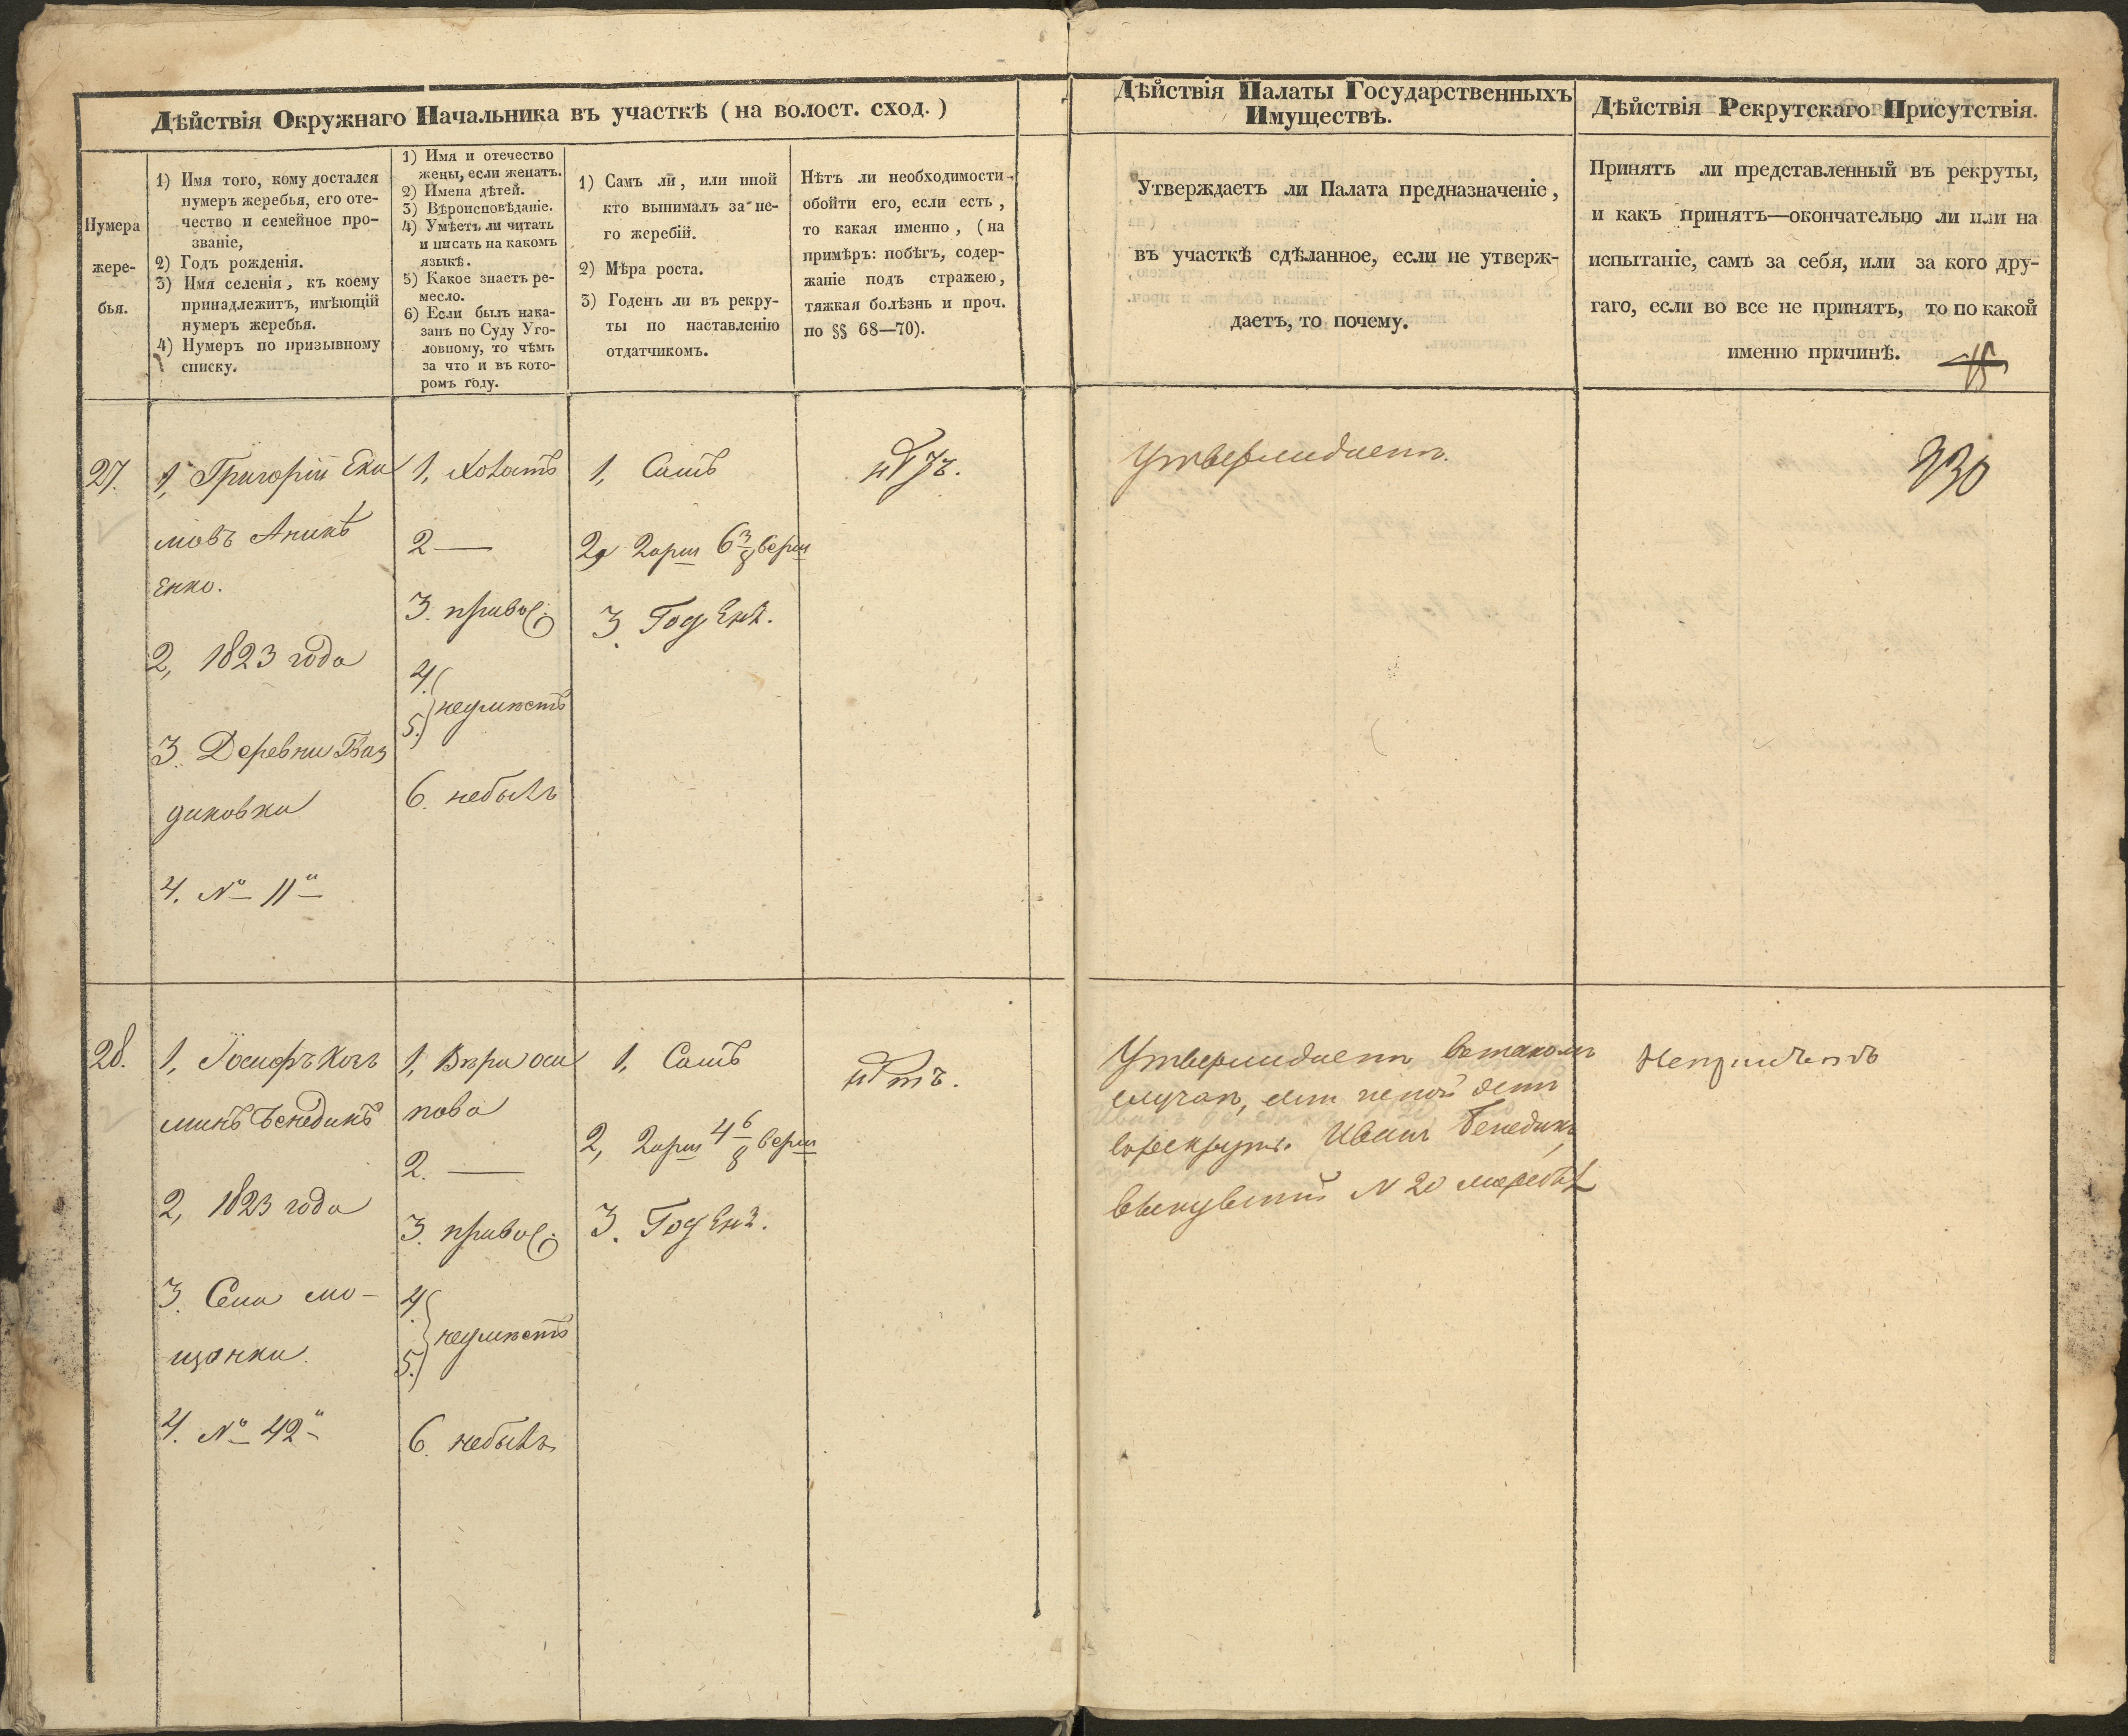 Дѣйствія Окружнаго Начальника въ участкѣ (на волост. сход.)
Нумера
жере-
бья.
1) Имя того, кому достался
нумеръ жеребья, его оте-
чество и семейное про-
званіе,
2) Годъ рожденія.
3) Имя селенія, къ коему
принадлежитъ, имѣющій
нумеръ жеребья.
4) Нумеръ по призывному
списку.
1) Имя и отечество
жены, если женатъ.
2) Имена дѣтей.
3) Вѣроисповѣданіе.
4) Умѣетъ ли читать
и писать на какомъ
языкѣ.
5) Какое знаетъ ре-
месло.
6) Если былъ нака-
занъ по Суду Уго-
ловному, то чѣмъ
за что и въ кото-
ромъ году.
1) Самъ ли, или иной
кто вынималъ за не-
го жеребій.
2) Мѣра роста.
3) Годенъ ли въ рекру-
ты по наставленію
отдатчикомъ.
Нѣтъ ли необходимости
обойти его, если есть,
то какая именно, (на
примѣръ: побѣгъ, содер-
жаніе подъ стражею,
тяжкая болѣзнь и проч.
по §§ 68—70).
Дѣйствія Палаты Государственныхъ
Имуществъ.
Утверждаетъ ли Палата предназначеніе,
въ участкѣ сдѣланное, если не утверж-
даетъ, то почему.
Дѣйствія Рекрутскаго Присутствія.
Принятъ ли представленный въ рекруты,
и какъ принятъ—окончательно ли или на
испытаніе, самъ за себя, или за кого дру-
гаго, если во все не принятъ, то по какой
именно причинѣ.
27.
1, Григорій Еки
мовъ Аникѣ
енко.
2, 1823 года
3. Деревни
диковки
4. № 11
1, Холостъ
2 —
3. правос:
4.
5. неумѣетъ
6. небылъ
1, Самъ
2, 2 арш 6 3/8 верш
3. Годенъ.
нѣтъ.
Утверждаетъ.
330
28.
1, Іосифъ Козь
минъ Бенедикъ
2, 1823 года
3. Села Мо-
щонки.
4. № 42
1, Вѣра Оси
пова
2. —
3. правос:
4.
5. неумѣетъ
6. небылъ
1, Самъ
2, 2 арш 4 6/8 верш
3. Годенъ.
нѣтъ.
Утверждаетъ въ такомъ
случаѣ, если
въ рекруты Иванъ Бенедикъ,
вынувшій N 20 жеребья